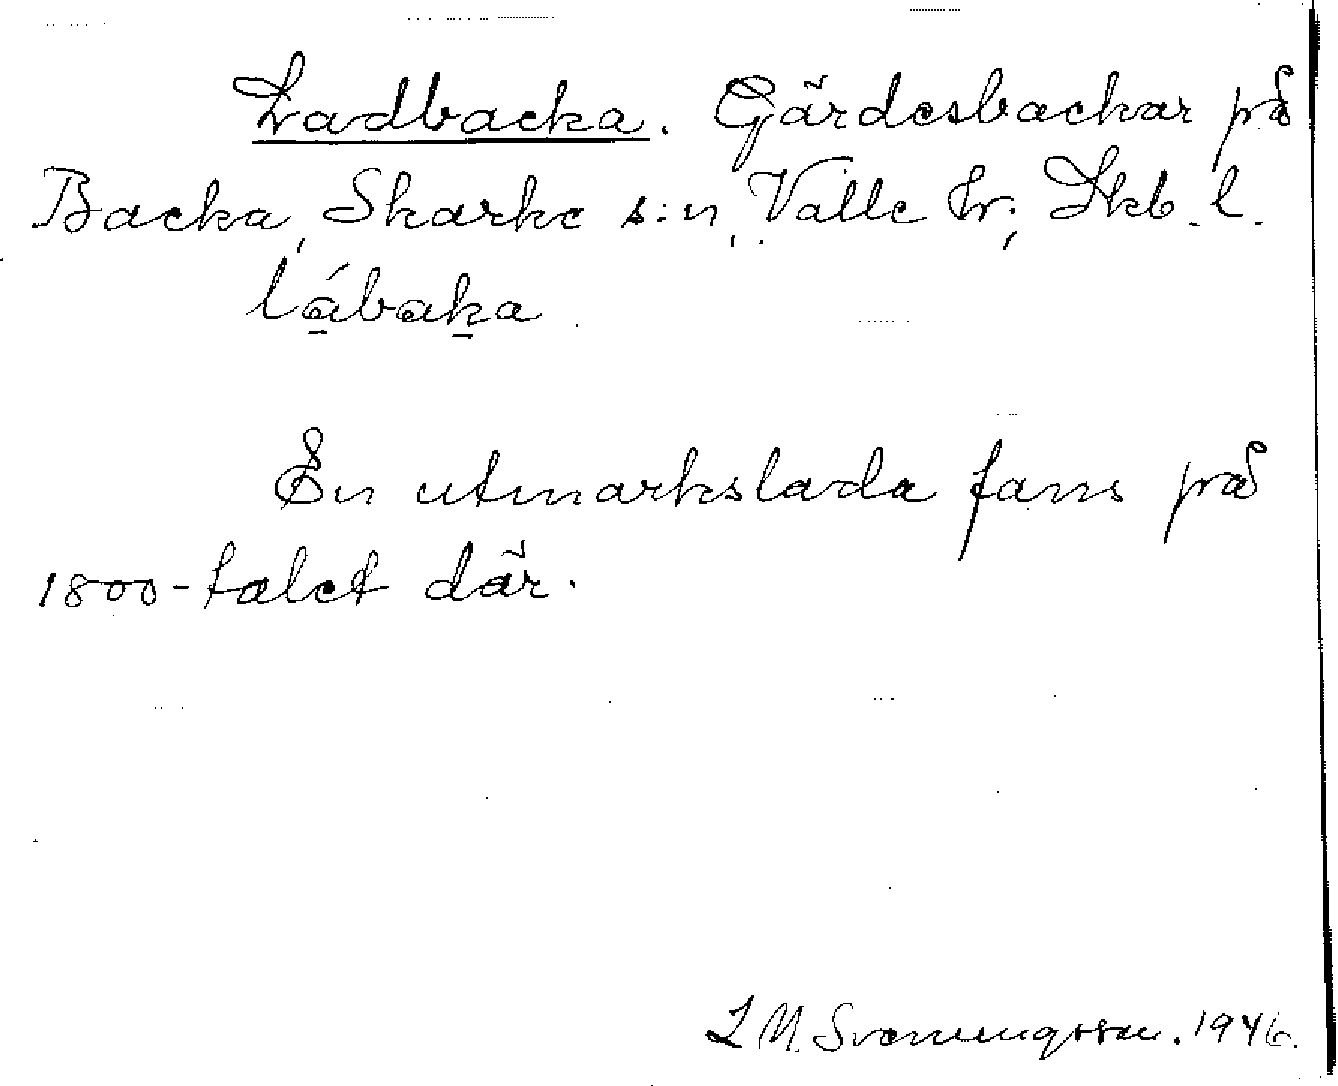 Ladbacka. Gärdesbackar på
Backa, Skarke s:n, Valle hr; Skb. l.
lábaka
En utmarkslada fans på
1800-talet där.
L M. Svenungsson. 1946.